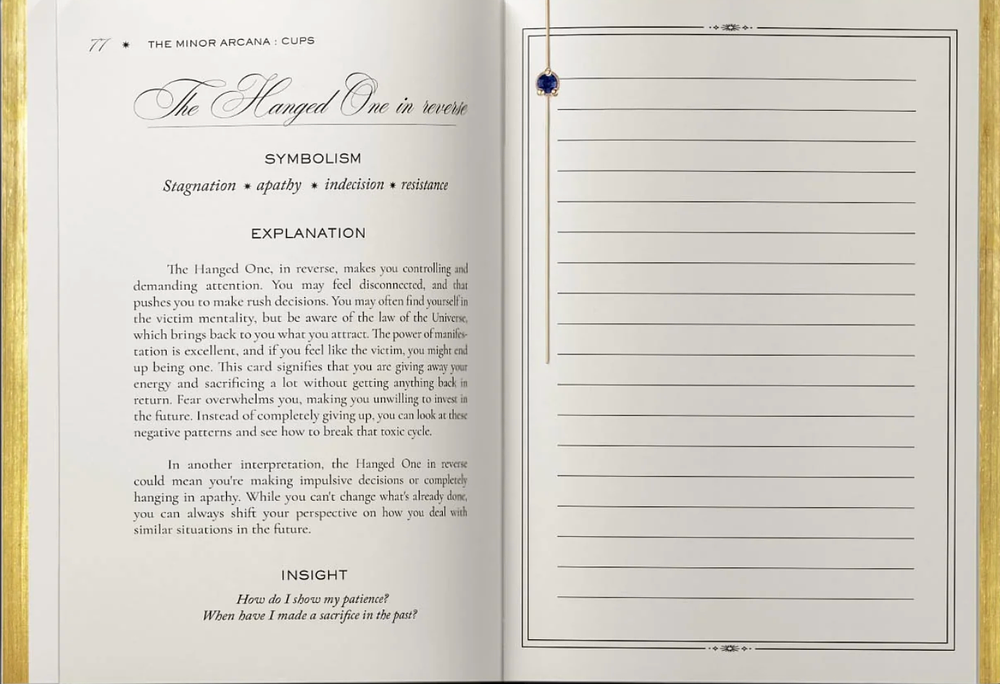 77 ✷ THE MINOR ARCANA : CUPS
The Hanged One in reverse
SYMBOLISM
Stagnation ✷ apathy ✷ indecision ✷ resistance
EXPLANATION
The Hanged One, in reverse, makes you controlling and
demanding attention. You may feel disconnected, and that
pushes you to make rush decisions. You may often find yourself in
the victim mentality, but be aware of the law of the Universe,
which brings back to you what you attract. The power of manifes-
tation is excellent, and if you feel like the victim, you might end
up being one. This card signifies that you are giving away your
energy and sacrificing a lot without getting anything back in
return. Fear overwhelms you, making you unwilling to invest in
the future. Instead of completely giving up, you can look at these
negative patterns and see how to break that toxic cycle.
In another interpretation, the Hanged One in reverse
could mean you're making impulsive decisions or completely
hanging in apathy. While you can't change what's already done,
you can always shift your perspective on how you deal with
similar situations in the future.
INSIGHT
How do I show my patience?
When have I made a sacrifice in the past?